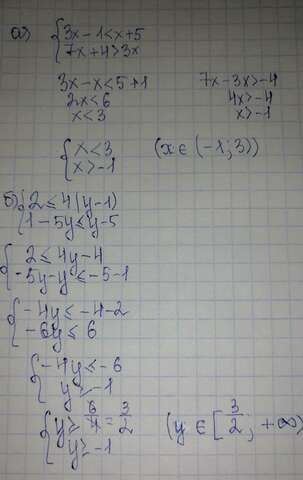 а) { 3x - 1 < x + 5
7x + 4 > 3x
3x - x < 5 + 1    7x - 3x > -4
2x < 6    4x > -4
x < 3    x > -1
{ x < 3    (x ∈ (-1; 3))
x > -1
б) { 2 ≤ 4(y-1)
1 - 5y ≤ y - 5
{ 2 ≤ 4y - 4
-5y - y ≤ -5 - 1
{ -4y ≤ -4 - 2
-6y ≤ 6
{ -4y ≤ -6
y ≥ -1
{ y ≥ 6/4 = 3/2    (y ∈ [3/2; +∞)
y ≥ -1